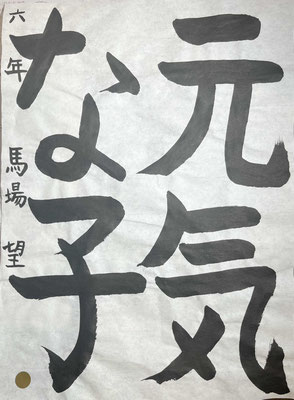 元気
な子
六年 馬場望